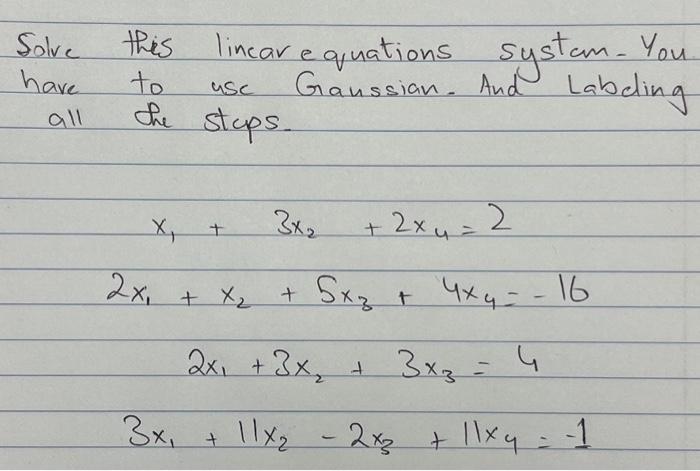 Solve this linear equations system. You
have to use Gaussian. And Labeling
all the steps.
x₁ + 3x₂ + 2x₄ = 2
2x₁ + x₂ + 5x₃ + 4x₄ = -16
2x₁ + 3x₂ + 3x₃ = 4
3x₁ + 11x₂ - 2x₃ + 11x₄ = -1